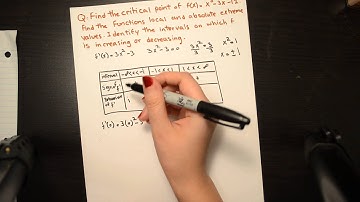 Q: Find the critical point of f(x) = x³-3x-12
Find the functions local and absolute extreme
values. Identify the intervals on which f
is increasing or decreasing.
f'(x) = 3x²-3 3x²-3=0 3x²/3 = 3/3 x²=1
x=±1
interval -∞<x<-1 -1<x<1 1<x<∞
Sign of f'
Behaviour of f
f'(0)=3(0)²-3